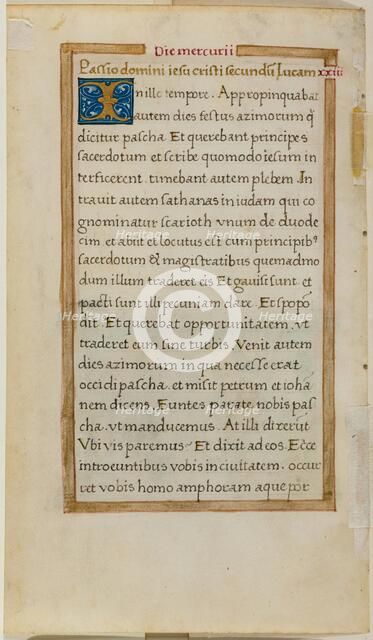 Die mercurii
Passio domini iesu cristi secundũ Lucam xxiii
In illo tempore. Appropinquabat
autem dies festus azimorum q̃
dicitur pascha. Et querebant principes
sacerdotum et scribe quomodo iesum in
terficerent. timebant autem plebem. In
travit autem sathanas in iudam qui co
gnominatur scarioth vnum de duode
cim et abiit et locutus est cum principibꝰ
sacerdotum & magistratibus quemadmo
dum illum traderet eis Et gauisi sunt et
pacti sunt illi pecuniam dare. Et spopõ
dit. Et querebat opportunitatem. vt
traderet eum sine turbis. Venit autem
dies azimorum in qua necesse erat
occidi pascha. et misit petrum et ioha
nem dicens. Euntes parate nobis pas
cha. vt manducemus. At illi dixerũt
Vbi vis paremus. Et dixit ad eos. Ecce
introeuntibus vobis in ciuitatem. occur
ret vobis homo amphoram aque por
Heritage
Heritage
Heritage
Heritage
Images
Images
Images
Images